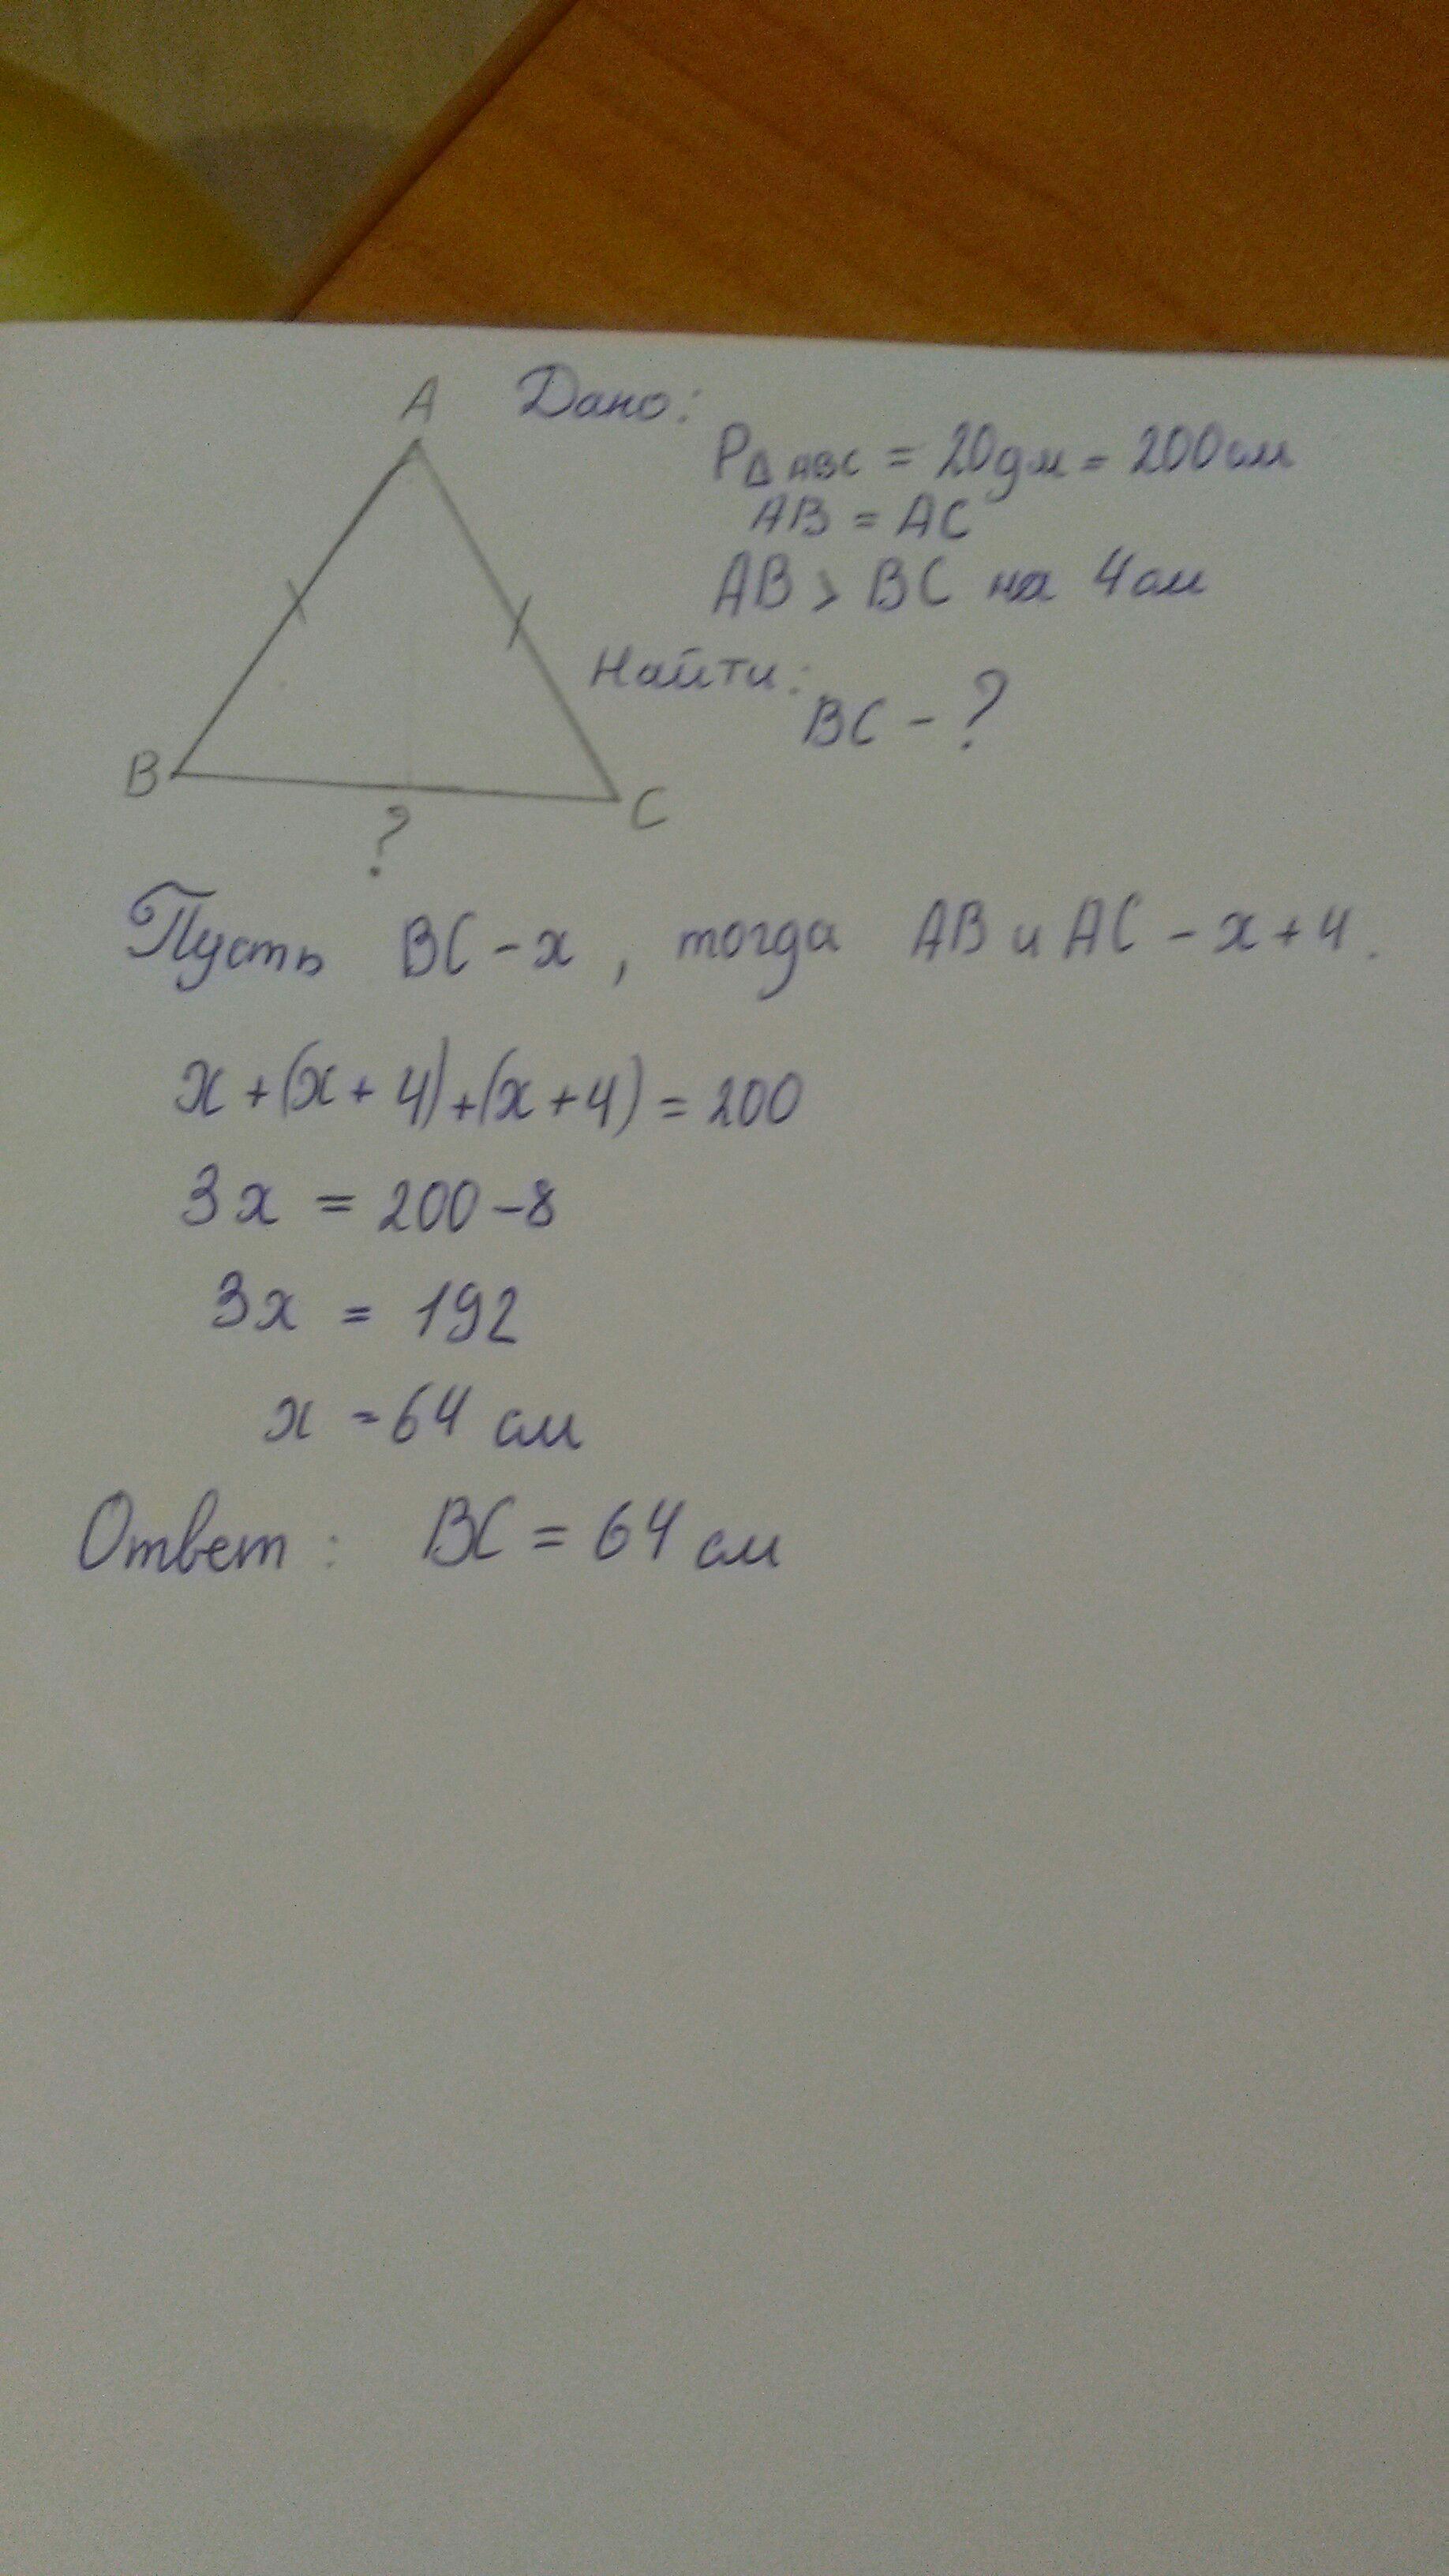 A
Дано:
P△ABC = 20дм = 200см
AB = AC
AB > BC на 4см
Найти:
BC - ?
B
C
?
Пусть BC - x, тогда AB и AC - x + 4.
x + (x + 4) + (x + 4) = 200
3x = 200 - 8
3x = 192
x = 64 см
Ответ: BC = 64 см